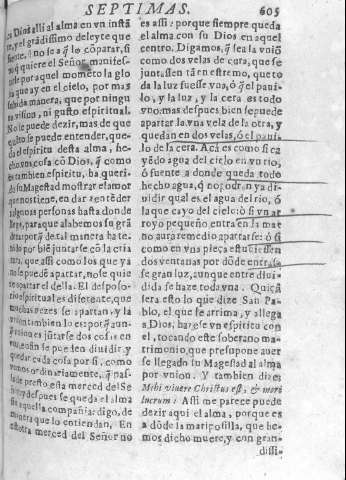 SEPTIMAS. 605
ca Dios alli al alma en vn instã
te, y el grãdissimo deleyte que
siente, q̃ no sea q̃ lo cõparar, si
no q̃ quiere el Señor manifes-
tarle por aquel momẽto la glo
ria que ay en el cielo, por mas
subida manera, que por ningu
na vision, ni gusto espiritual.
No se puede dezir, mas de que
quãto se puede entender, que-
da el espiritu desta alma, he-
cho vna cosa cõ Dios, q̃ como
es tambien espiritu, ha queri-
do su Magestad mostrar el amor
que nos tiene, en dar a entẽder
a algunas personas hasta donde
llega, para que alabemos su grã
deza: porq̃ de tal manera ha te-
nido por biẽ juntarse cõ la cria
tura, que assi como los que ya
no se puedẽ apartar, no se quie
re apartar el della. El desposo-
rio espiritual es diferente, que
muchas vezes se apartan, y la
vnion tambien lo es: porq̃ aun
q̃ vnion es jũtarse dos cosas en
vna, en fin se puedẽ diuidir, y
quedar cada cosa por si, como
vemos ordinariamẽte, q̃ pas-
sa de presto esta merced del Se
ñor, y despues se queda el alma
sin aquella compañia: digo, de
manera que lo entiendan. En
estotra merced del Señor no
es assi: porque siempre queda
el alma con su Dios en aquel
centro. Digamos, q̃ sea la vniõ
como dos velas de cera, que se
juntassen tã en estremo, que to
da la luz fuesse vna, ó q̃ el paui-
lo, y la luz, y la cera es todo
vno: mas despues bien se puede
apartar la vna vela de la otra, y
quedan en dos velas, ó el paui-
lo de la cera. Acà es como si ca
yẽdo agua del cielo en vn rio,
ó fuente a donde queda todo
hecho agua, q̃ no podrã ya di-
uidir qual es el agua del rio, ó
la que cayo del cielo: ó si vn ar
royo pequeño entra en la mar
no aurà remedio apartarse: ó si
como en vna pieça estuuiessen
dos ventanas por dõde entrasse
gran luz, aunque entre diui-
dida se haze toda vna. Quiçá
serà esto lo que dize San Pa-
blo, el que se arrima, y allega
a Dios, hazese vn espiritu con
el, tocando este soberano ma-
trimonio, que presupone auer
se llegado su Magestad al alma
por vnion. Y tambien dize:
Mihi viuere Christus est, & mori
lucrum: Assi me parece puede
dezir aqui el alma, porque es
a dõde la mariposilla, que he-
mos dicho muere, y con gran-
dissi-